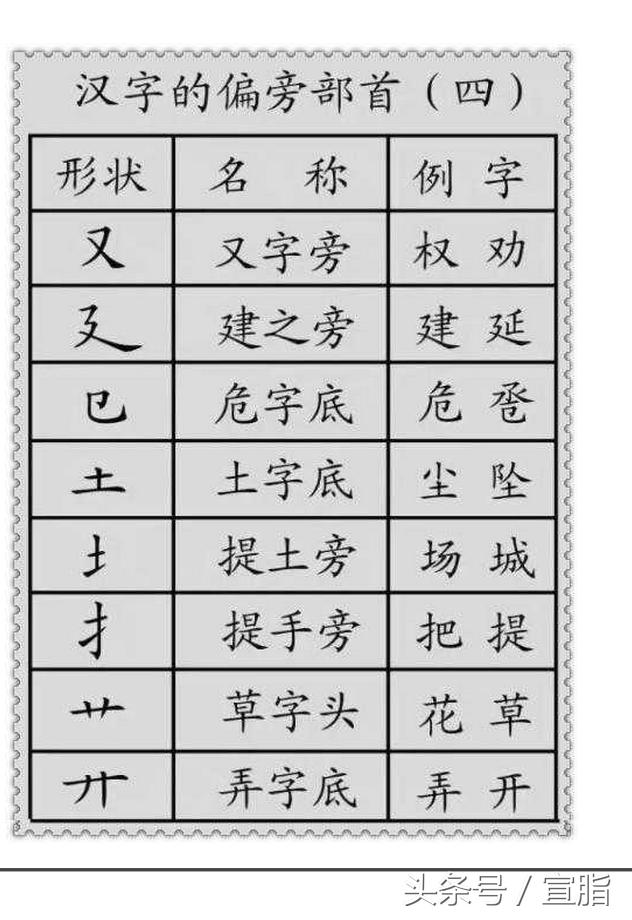 汉字的偏旁部首（四）
形状 名称 例字
又 又字旁 权 劝
廴 建之旁 建 延
㔾 危字底 危 卺
土 土字底 尘 坠
土 提土旁 场 城
扌 提手旁 把 提
艹 草字头 花 草
廾 弄字底 弄 开
头条号 / 宣脂